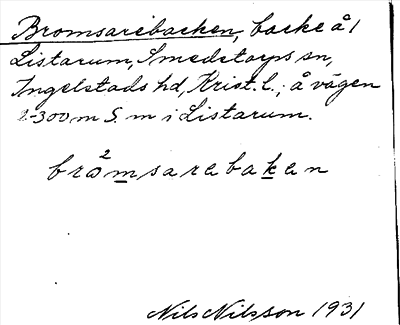 Bromsarebacken, backe å 1
Listarum, Smedstorps sn,
Ingelstads hd, Krist. l.; å vägen
2-300 m S. m i Listarum.
brò2msarebaken
Nils Nilsson 1931